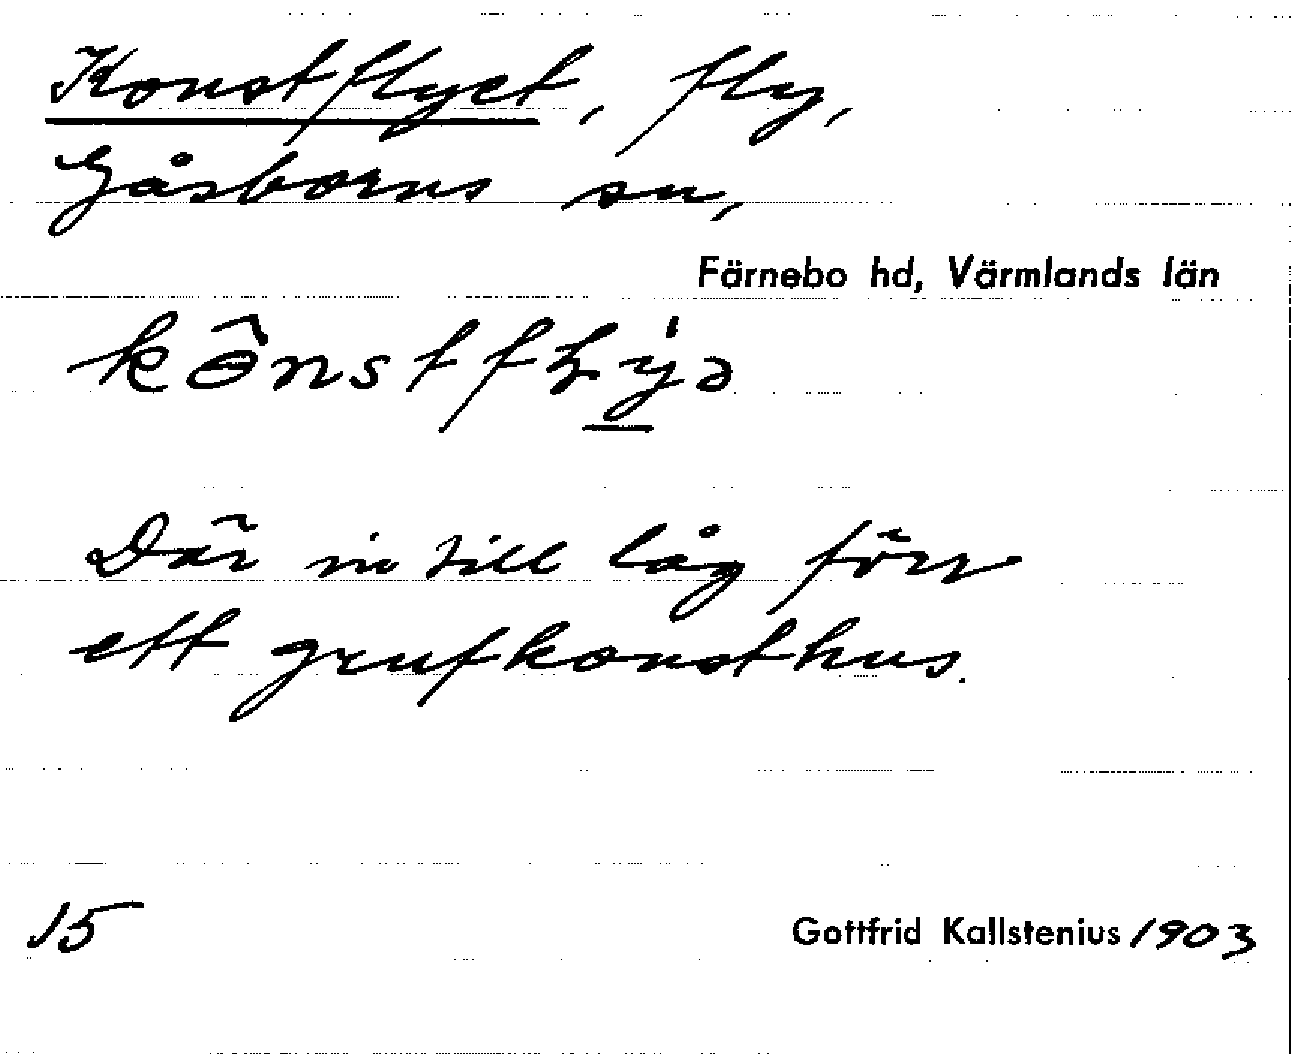 Konstflyet, fly,
Gåsborns sn,
Färnebo hd, Värmlands län
Där in till låg förr
ett grufkonsthus.
15 Gottfrid Kallstenius 1903